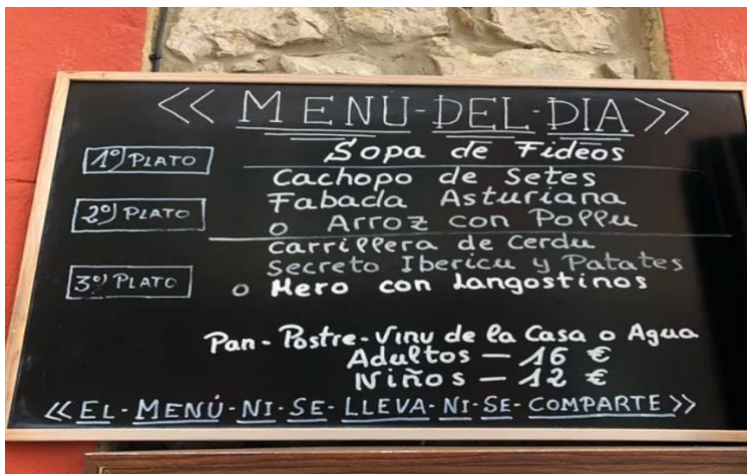 << MENU-DEL-DIA >>
1º) PLATO Sopa de Fideos
Cachopo de Setes
2º) PLATO Fabada Asturiana
o Arroz con Pollu
Carrillera de Cerdu
3º) PLATO Secreto Ibericu y Patates
o Mero con Langostinos
Pan - Postre - Vinu de la Casa o Agua
Adultos — 16 €
Niños — 12 €
<< EL - MENÚ - NI - SE - LLEVA - NI - SE - COMPARTE >>